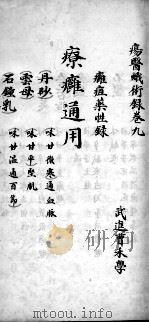 瘍醫蛾術錄卷九
武進曹禾學
癰疽藥性錄
療癰通用
丹砂 味甘微寒通血脉
雲母 味甘平堅肌
石鐘乳 味甘溫通百節
www.modernjournal.com